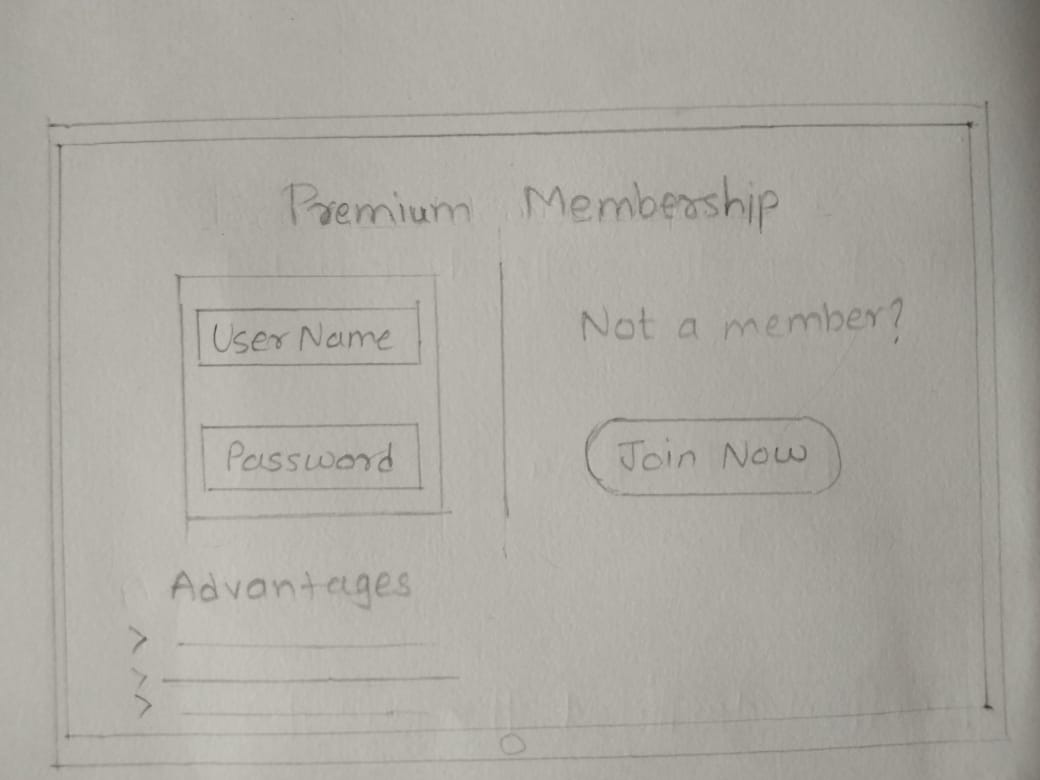 Premium Membership
User Name
Password
Not a member?
Join Now
Advantages